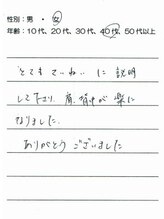 性別：男 ・ 女
年齢：10代、20代、30代、40代、50代以上
とても ていねい に 説明
して下さり 肩、背中が 楽に
なりました。
ありがとう ございました